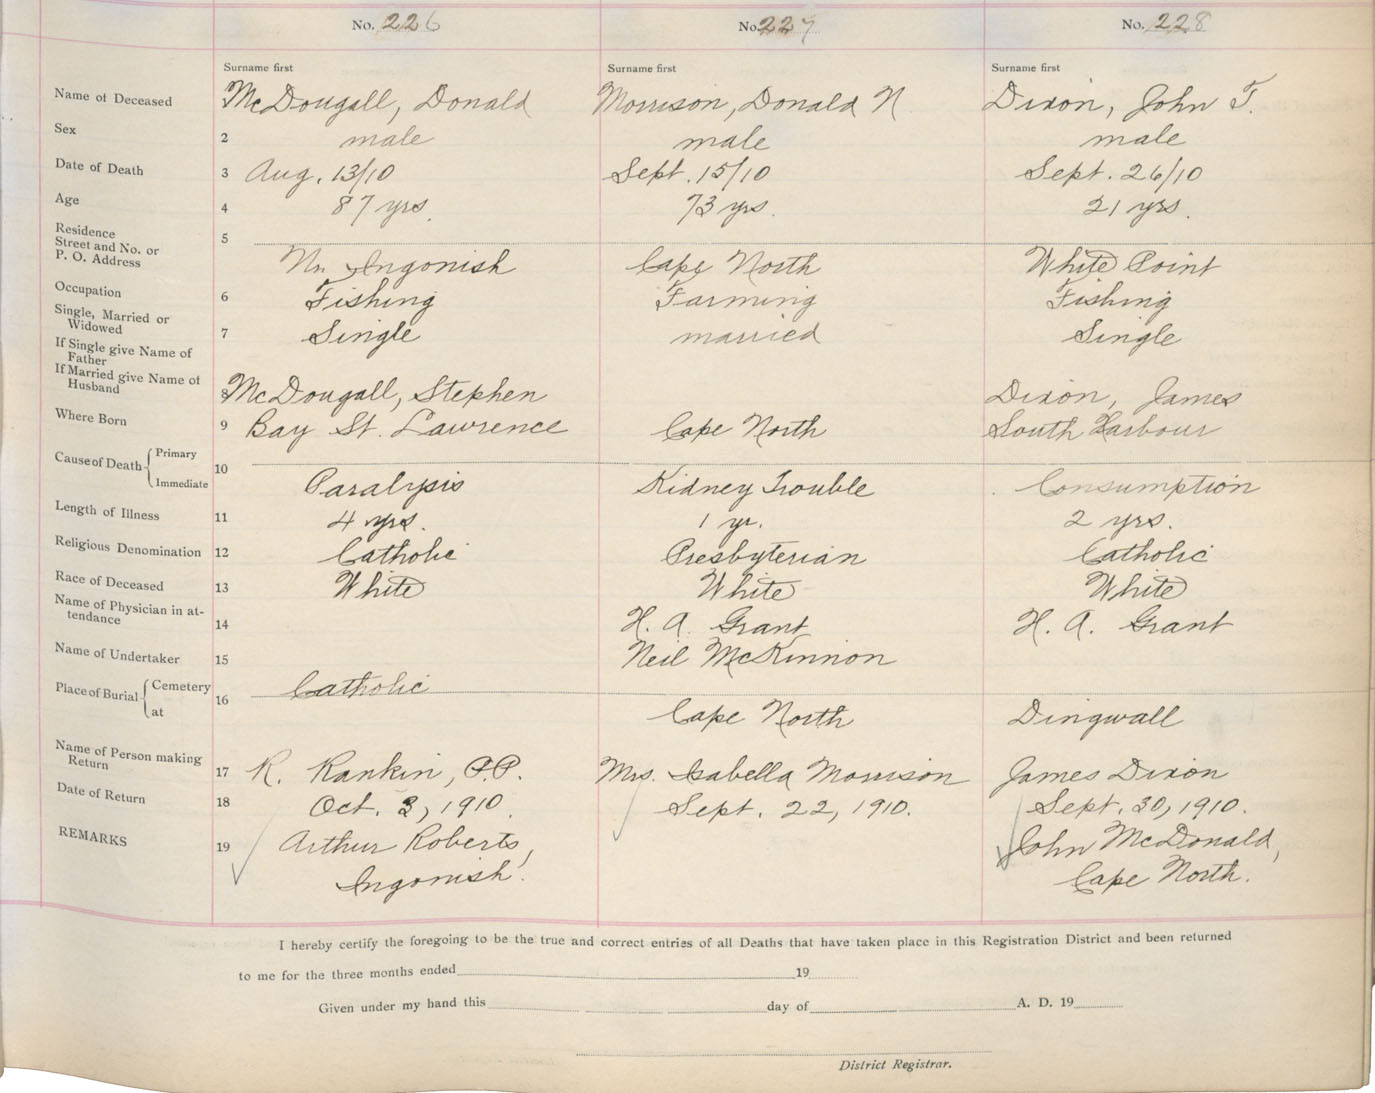 No. 226 No. 227 No. 228
Surname first Surname first Surname first
Name of Deceased McDougall, Donald Morrison, Donald N Dixon, John F.
Sex 2 male male male
Date of Death 3 Aug. 13/10 Sept. 15/10 Sept. 26/10
Age 4 87 yrs. 73 yrs. 21 yrs.
Residence
Street and No. or 5
P. O. Address Nn Ingonish Cape North White Point
Occupation 6 Fishing Farming Fishing
Single, Married or
Widowed 7 Single married Single
If Single give Name of
Father
If Married give Name of
Husband 8 McDougall, Stephen Dixon, James
Where Born 9 Bay St. Lawrence Cape North South Harbour
Cause of Death Primary 10
Immediate Paralysis Kidney Trouble Consumption
Length of Illness 11 4 yrs. 1 yr. 2 yrs.
Religious Denomination 12 Catholic Presbyterian Catholic
Race of Deceased 13 White White White
Name of Physician in at-
tendance 14 H. A. Grant H. A. Grant
Name of Undertaker 15 Neil McKinnon
Place of Burial Cemetery 16 Catholic
at Cape North Dingwall
Name of Person making
Return 17 R. Rankin, P.P. Mrs. Isabella Morrison James Dixon
Date of Return 18 Oct. 3, 1910. Sept. 22, 1910. Sept. 30, 1910.
REMARKS 19 Arthur Roberts, John McDonald,
Ingonish. Cape North.
I hereby certify the foregoing to be the true and correct entries of all Deaths that have taken place in this Registration District and been returned
to me for the three months ended 19
Given under my hand this day of A. D. 19
District Registrar.